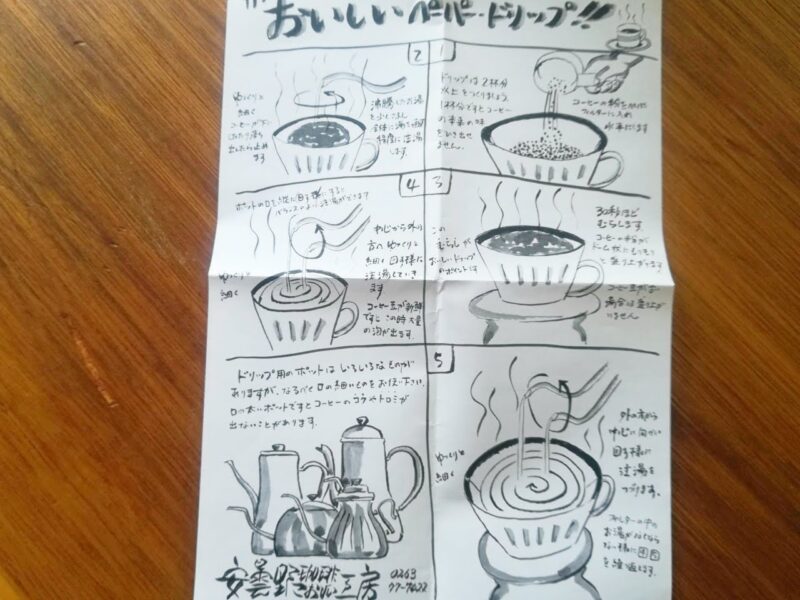 おいしいペーパー・ドリップ!!
1
ドリップは2杯分
以上をつくりましょう。
1杯分ですとコーヒー
の本来の味
を引き出せ
ません。
コーヒーの粉を
フィルターに入れ
水平にします
2
沸騰したお湯
全体に湯を
程度に注湯
します。
ゆっくりと
細く
コーヒーが下に
したたり落ち
出したら止め
ます
3
30秒ほど
むらします
コーヒーの粉が
ドーム状に
と盛り上がります
コーヒー豆が古い
場合は盛り上が
いません
この
むらしが
おいしいドリップ
のポイントです
4
中心から外の
方へゆっくりと
細くのの字様に
注湯していき
ます
コーヒー豆が新鮮
ですとこの時大量
の泡が出ます.
ゆっくり
細く
5
外の方から
中心に向い
のの字様に
注湯を
つづけます.
フィルターの中の
お湯がなくなら
ない様に4 5
を繰返します.
ゆっくりと
細く
ドリップ用のポットはいろいろなものが
ありますが、なるべく口の細いものをお使い下さい。
口の太いポットですとコーヒーのコクやトロミが
出ないことがあります.
安曇野珈琲工房
0263
77-7622